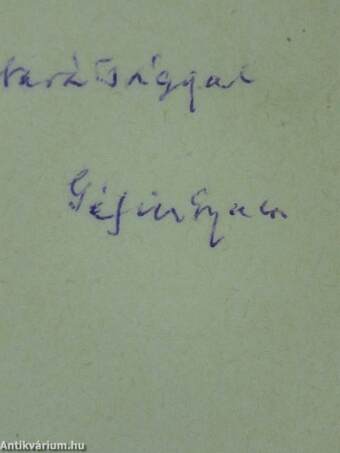 barátsággal
Géfin Gyula
Antikvárium.hu